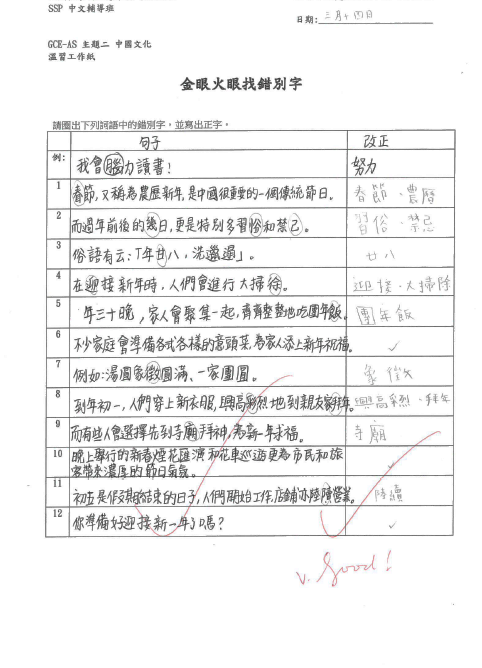 SSP 中文輔導班
日期: 三月十四日
GCE-AS 主題二 中國文化
溫習工作紙
金眼火眼找錯別字
請圈出下列詞語中的錯別字，並寫出正字。
句子 改正
例: 我會腦力讀書! 努力
1 春節,又稱為農歷新年,是中國很重要的一個傳統節日。 春節、農曆
2 而過年前後的幾日,更是特別多習俗和禁己。 習俗、禁忌
3 俗語有云:「年廿八,洗邋遢」。 廿八
4 在迎接新年時,人們會進行大掃待。 迎接、大掃除
5 年三十晚,家人會聚集一起,齊齊整整地吃團年飯。 團年飯
6 不少家庭會準備各式各樣的意頭菜,為家人添上新年祝福。 ✓
7 例如:湯圓象徵圓滿、一家團圓。 象徵
8 到年初一,人們穿上新衣服,興高彩烈地到親友家拜年。 興高采烈、拜年
9 而有些人會選擇先到寺廟拜神,為新一年求福。 寺廟
10 晚上舉行的新春煙花匯演和花車巡遊更為市民和旅
客帶來濃厚的節日氣氛。 ✓
11 初五是假期結束的日子,人們開始工作,店鋪亦陸續營業。 陸續
12 你準備好迎接新一年了嗎? ✓
v. Good!